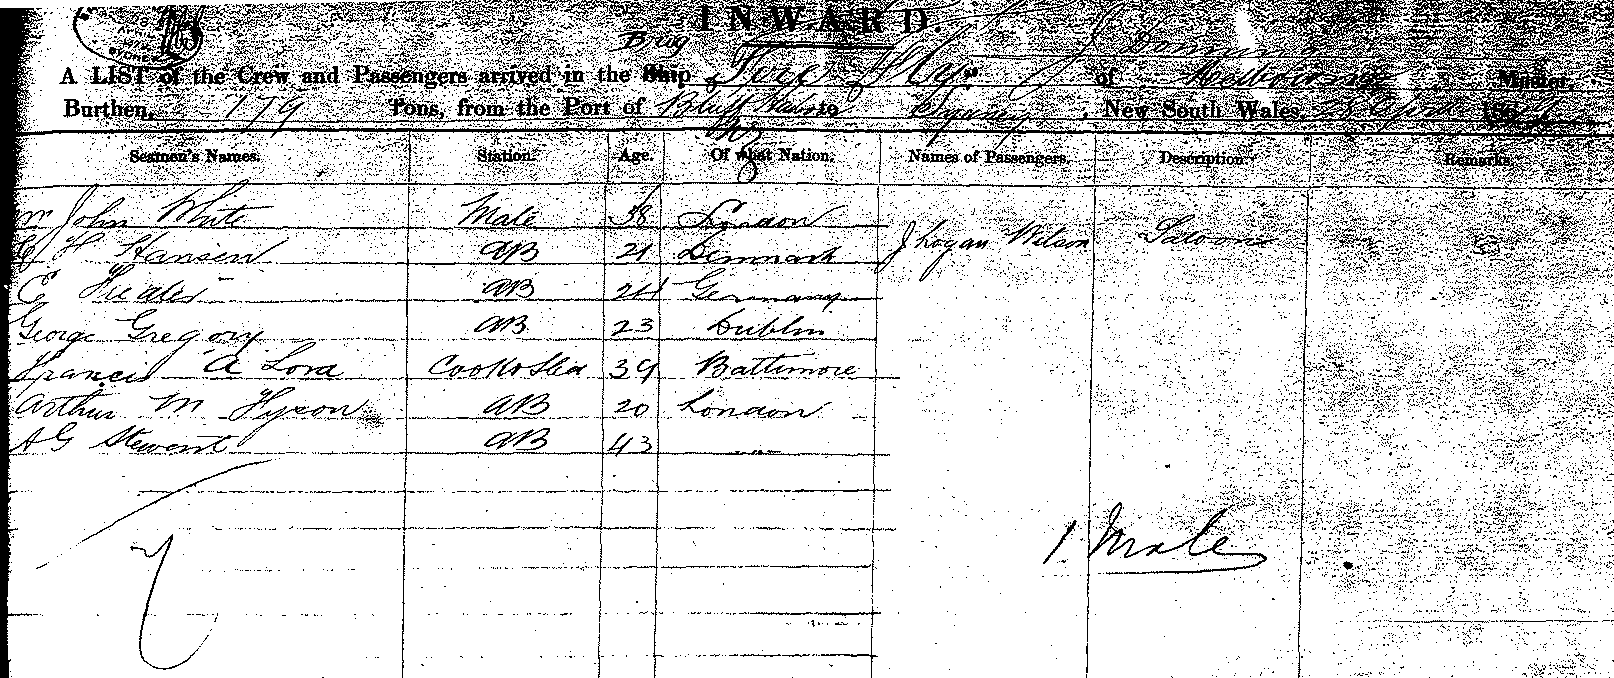 INWARD.
Brig
A LIST of the Crew and Passengers arrived in the Ship Fire Fly of Melbourne Master,
Burthen, 179 Tons, from the Port of Bluff to Sydney, New South Wales, 8 April 186
Seamen's Names. Station. Age. Of what Nation. Names of Passengers. Description Remarks
Mr John White Mate 38 London
H Hansen AB 21 Denmark J Logan Wilson Saloon
C AB 24 Germany
George Gregory AB 23 Dublin
Francis A Lord Cook & Std 39 Baltimore
Arthur M Hyson AB 20 London
A G Stewart AB 43 "
1. Male
7